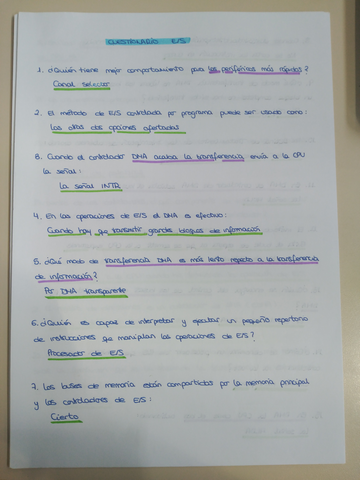 CUESTIONARIO E/S
1. ¿Quién tiene mejor comportamiento para los periféricos más rápidos?
Canal selector
2. El método de E/S controlada por programa puede ser usado como:
Las otras dos opciones ofertadas
3. Cuando el controlador DMA acaba la transferencia envía a la CPU
la señal:
La señal INTR
4. En las operaciones de E/S el DMA es efectivo:
Cuando hay que transferir grandes bloques de información
5. ¿Qué modo de transferencia DMA es más lento respecto a la transferencia
de información?
Por DMA transparente
6. ¿Quién es capaz de interpretar y ejecutar un pequeño repertorio
de instrucciones que manipulan las operaciones de E/S?
Procesador de E/S
7. Los buses de memoria están compartidos por la memoria principal
y los controladores de E/S:
Cierto